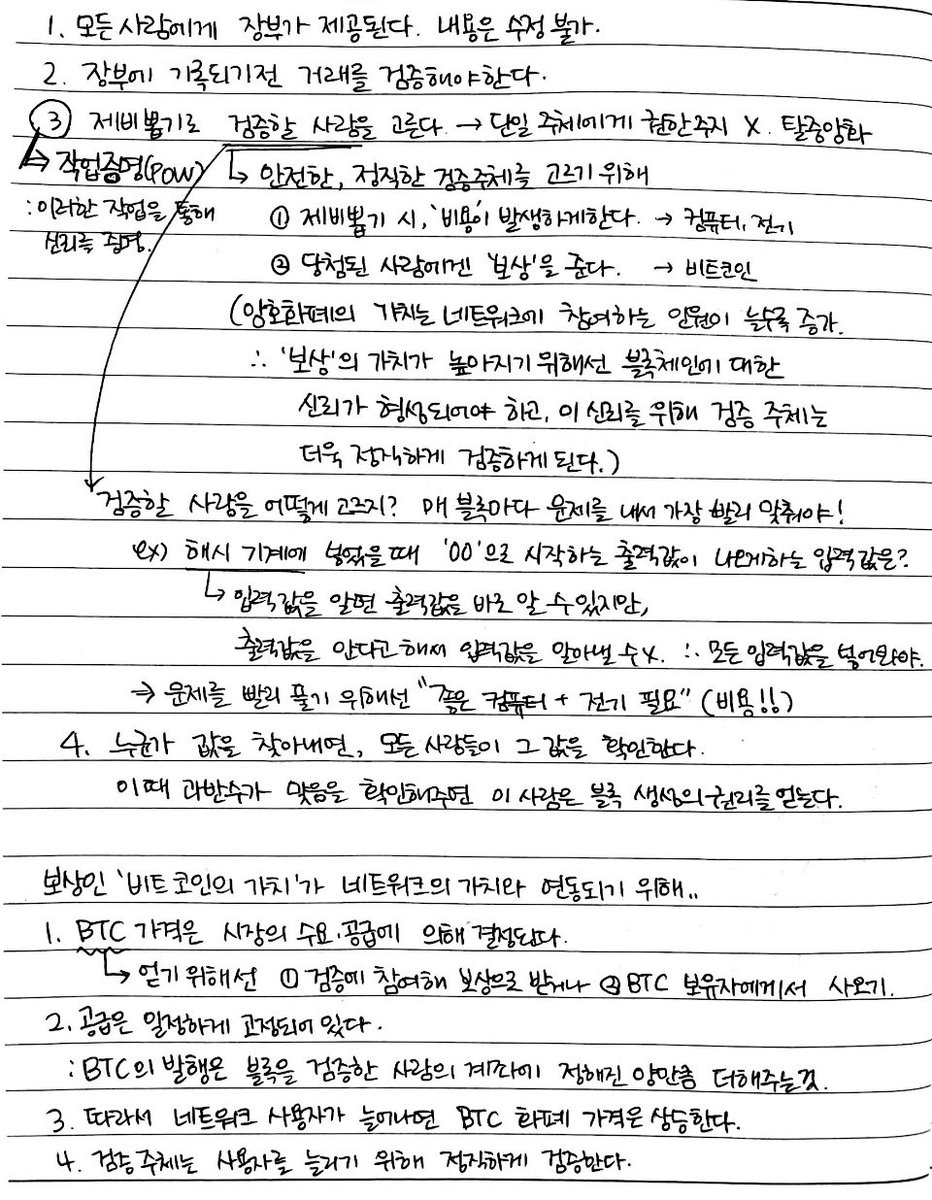 1. 모든 사람에게 장부가 제공된다. 내용은 수정 불가.
2. 장부에 기록되기전 거래를 검증해야한다.
③ 제비뽑기로 검증할 사람을 고른다. → 단일 주체에게 권한주지 X. 탈중앙화
↳ 작업증명(POW)
: 이러한 작업을 통해
신뢰를 증명.
↳ 안전한, 정직한 검증주체를 고르기 위해
① 제비뽑기 시, '비용'이 발생하게한다. → 컴퓨터, 전기
② 당첨된 사람에겐 '보상'을 준다. → 비트코인
(암호화폐의 가치는 네트워크에 참여하는 인원이 늘수록 증가.
∴ '보상'의 가치가 높아지기 위해선 블록체인에 대한
신뢰가 형성되어야 하고, 이 신뢰를 위해 검증 주체는
더욱 정직하게 검증하게 된다.)
검증할 사람을 어떻게 고르지? 매 블록마다 문제를 내서 가장 빨리 맞춰야!
ex) 해시 기계에 넣었을때 '00'으로 시작하는 출력값이 나오게하는 입력값은?
↳ 입력값을 알면 출력값을 바로 알 수 있지만,
출력값을 안다고해서 입력값을 알아낼 수 X. ∴ 모든 입력값을 넣어봐야.
→ 문제를 빨리 풀기 위해선 "좋은 컴퓨터 + 전기 필요" (비용!!)
4. 누군가 값을 찾아내면, 모든 사람들이 그 값을 확인한다.
이때 과반수가 맞음을 확인해주면 이 사람은 블록 생성의 권리를 얻는다.
보상인 '비트코인의 가치'가 네트워크의 가치와 연동되기 위해..
1. BTC 가격은 시장의 수요·공급에 의해 결정된다.
↳ 얻기 위해선 ① 검증에 참여해 보상으로 받거나 ② BTC 보유자에게서 사오기.
2. 공급은 일정하게 고정되어 있다.
: BTC의 발행은 블록을 검증한 사람의 계좌에 정해진 양만큼 더해주는것.
3. 따라서 네트워크 사용자가 늘어나면 BTC 화폐 가격은 상승한다.
4. 검증주체는 사용자를 늘리기 위해 정직하게 검증한다.